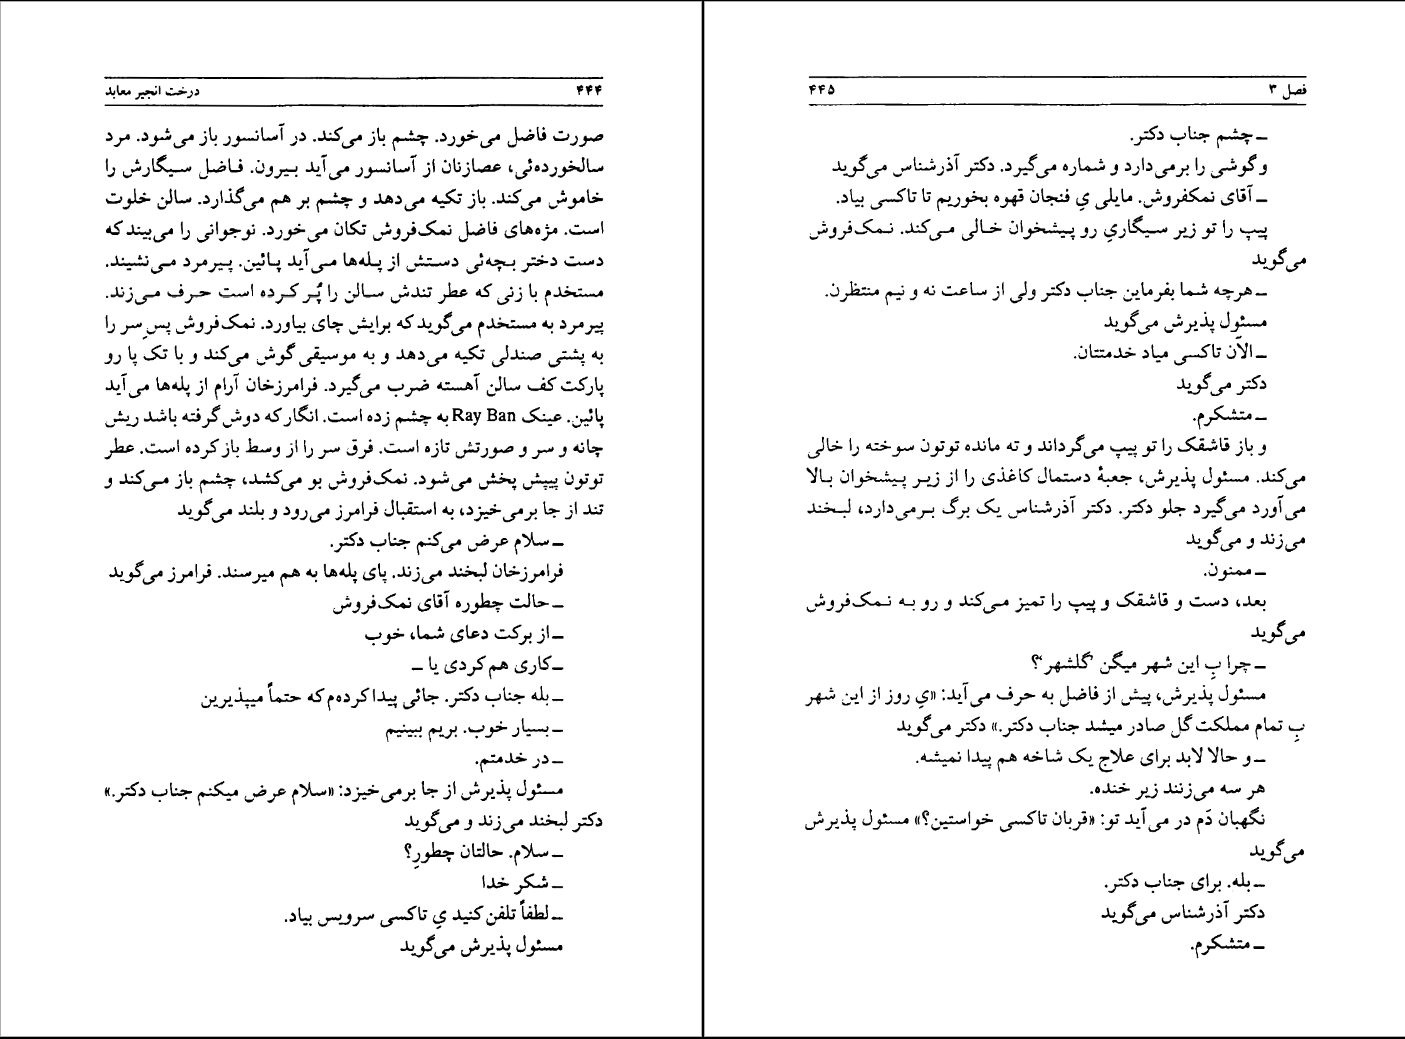 ۴۴۴ درخت انجیر معابد
صورت فاضل می‌خورد. چشم باز می‌کند. در آسانسور باز می‌شود. مرد
سالخورده‌ئی، عصازنان از آسانسور می‌آید بیرون. فاضل سیگارش را
خاموش می‌کند. باز تکیه می‌دهد و چشم بر هم می‌گذارد. سالن خلوت
است. مژه‌های فاضل نمک‌فروش تکان می‌خورد. نوجوانی را می‌بیند که
دست دختر بچه‌ئی دستش از پله‌ها می‌آید پائین. پیرمرد می‌نشیند.
مستخدم با زنی که عطر تندش سالن را پُر کرده است حرف می‌زند.
پیرمرد به مستخدم می‌گوید که برایش چای بیاورد. نمک‌فروش پسِ سر را
به پشتی صندلی تکیه می‌دهد و به موسیقی گوش می‌کند و با تک پا رو
پارکت کف سالن آهسته ضرب می‌گیرد. فرامرزخان آرام از پله‌ها می‌آید
پائین. عینک Ray Ban به چشم زده است. انگار که دوش گرفته باشد ریش
چانه و سر و صورتش تازه است. فرق سر را از وسط باز کرده است. عطر
توتون پیپش پخش می‌شود. نمک‌فروش بو می‌کشد، چشم باز می‌کند و
تند از جا برمی‌خیزد، به استقبال فرامرز می‌رود و بلند می‌گوید
ـ سلام عرض می‌کنم جناب دکتر.
فرامرزخان لبخند می‌زند. پای پله‌ها به هم میرسند. فرامرز می‌گوید
ـ حالت چطوره آقای نمک‌فروش
ـ از برکت دعای شما، خوب
ـ کاری هم کردی یا ـ
ـ بله جناب دکتر. جائی پیدا کرده‌م که حتماً میپذیرین
ـ بسیار خوب. بریم ببینیم
ـ در خدمتم.
مسئول پذیرش از جا برمی‌خیزد: «سلام عرض میکنم جناب دکتر.»
دکتر لبخند می‌زند و می‌گوید
ـ سلام. حالتان چطورِ؟
ـ شکر خدا
ـ لطفاً تلفن کنید یِ تاکسی سرویس بیاد.
مسئول پذیرش می‌گوید
فصل ۳ ۴۴۵
ـ چشم جناب دکتر.
و گوشی را برمی‌دارد و شماره می‌گیرد. دکتر آذرشناس می‌گوید
ـ آقای نمکفروش. مایلی یِ فنجان قهوه بخوریم تا تاکسی بیاد.
پیپ را تو زیر سیگاریِ رو پیشخوان خالی می‌کند. نمک‌فروش
می‌گوید
ـ هرچه شما بفرماین جناب دکتر ولی از ساعت نه و نیم منتظرن.
مسئول پذیرش می‌گوید
ـ الآن تاکسی میاد خدمتتان.
دکتر می‌گوید
ـ متشکرم.
و باز قاشقک را تو پیپ می‌گرداند و ته مانده توتون سوخته را خالی
می‌کند. مسئول پذیرش، جعبهٔ دستمال کاغذی را از زیر پیشخوان بالا
می‌آورد می‌گیرد جلو دکتر. دکتر آذرشناس یک برگ برمی‌دارد، لبخند
می‌زند و می‌گوید
ـ ممنون.
بعد، دست و قاشقک و پیپ را تمیز می‌کند و رو به نمک‌فروش
می‌گوید
ـ چرا بِ این شهر میگن ‘گلشهر’؟
مسئول پذیرش، پیش از فاضل به حرف می‌آید: «یِ روز از این شهر
بِ تمام مملکت گل صادر میشد جناب دکتر.» دکتر می‌گوید
ـ و حالا لابد برای علاج یک شاخه هم پیدا نمیشه.
هر سه می‌زنند زیر خنده.
نگهبان دَم در می‌آید تو: «قربان تاکسی خواستین؟» مسئول پذیرش
می‌گوید
ـ بله. برای جناب دکتر.
دکتر آذرشناس می‌گوید
ـ متشکرم.